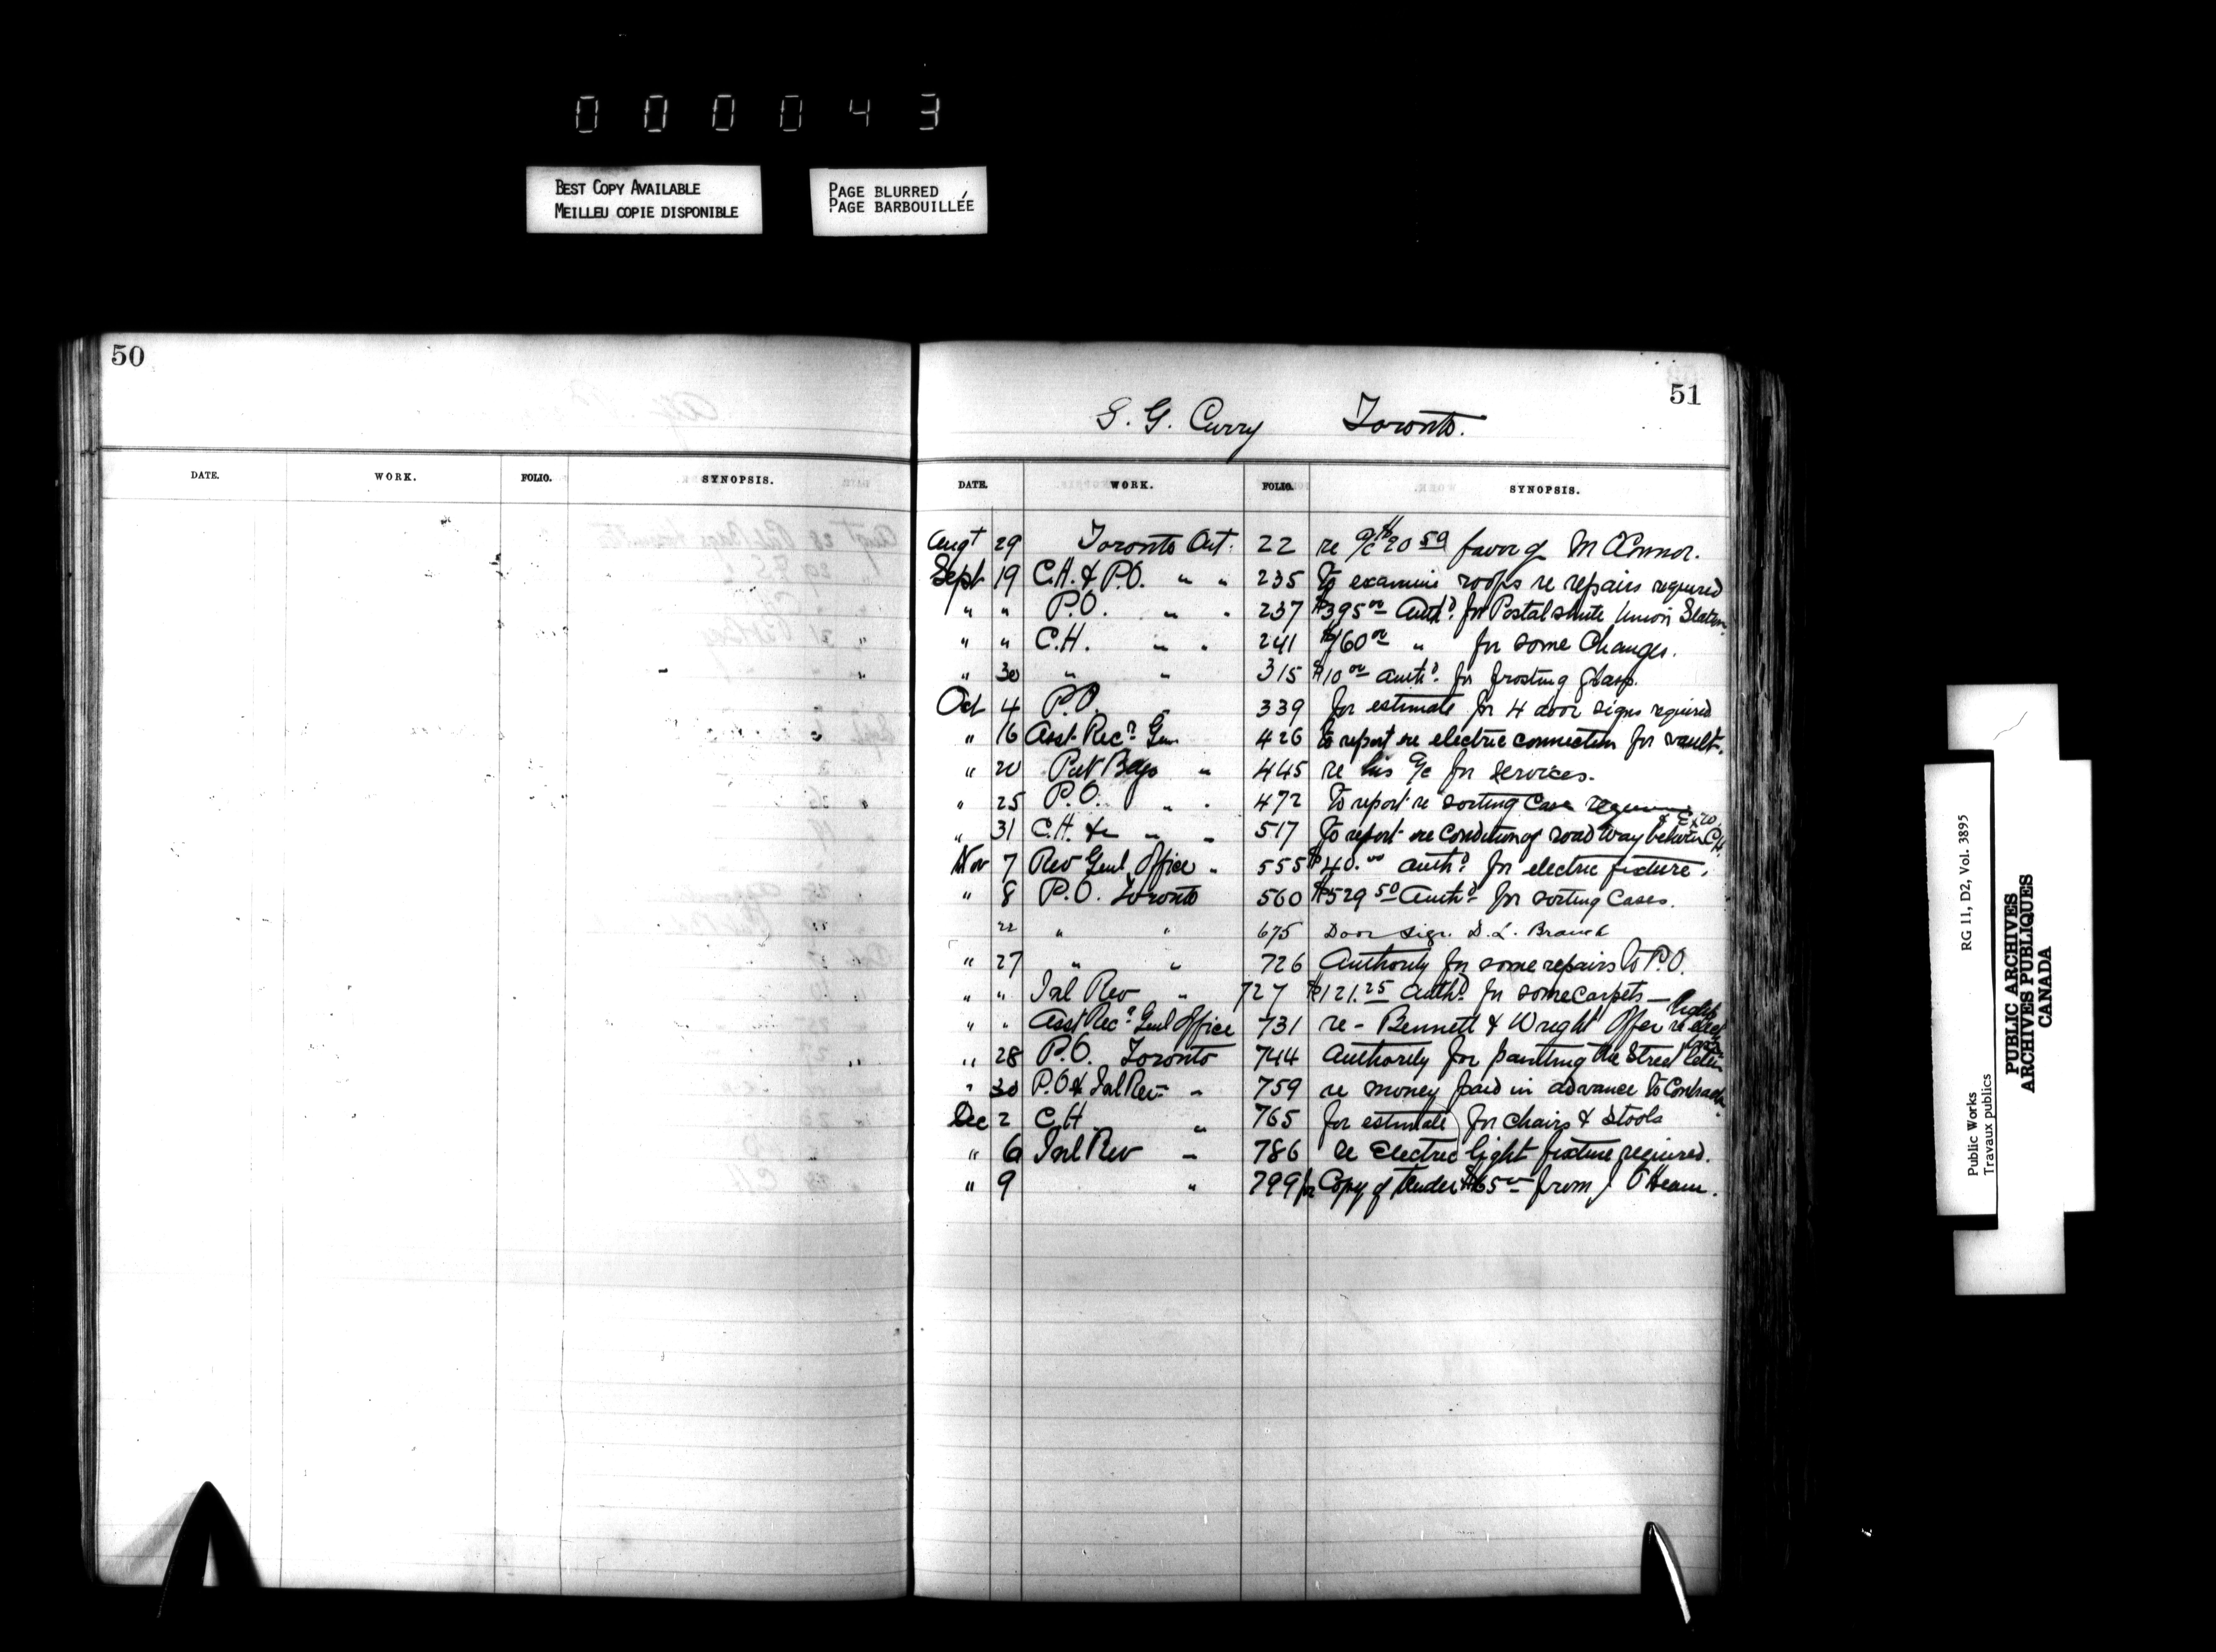 000043
BEST COPY AVAILABLE
MEILLEU COPIE DISPONIBLE
PAGE BLURRED
PAGE BARBOUILLÉE
50
DATE. WORK. FOLIO. SYNOPSIS.
51
S. G. Curry Toronto.
DATE. WORK. FOLIO. SYNOPSIS.
Augt 29 Toronto Ont. 22 re a/c $20 59 favor of M OConnor.
Sept 19 C.H. & P.O. " " 235 To examine roofs re repairs required
" " P.O. " " 237 $395 00 Authd. for Postal shute Union Station
" " C.H. " " 241 $160 00 " for some Changes.
" 30 " " 315 $10 00 authd. for frosting glass.
Oct 4 P.O. " 339 for estimate for 4 door signs required
" 16 Asst. Recr Gen 426 to report re electric connection for vault.
" 20 Pub Bdgs " 445 re his a/c for services.
" 25 P.O. " " 472 To report re sorting Case required
" 31 C.H. &c " " 517 To report re condition of road way between C.H. & Ex. W.
Nov 7 Rev Genl Office " 555 $40. 00 authd for electric fixture.
" 8 P.O. Toronto 560 $529 50 Authd for sorting Cases.
22 " " 675 Door sign D. L. Branch
" 27 " " 726 Authority for some repairs to P.O.
" " Inl Rev " 727 $121.25 authd for some carpets —
" " Asst Recr Genl Office 731 re - Bennett & Wright Offer re elect light
" 28 P.O. Toronto 744 Authority for painting the Street letter
" 30 P.O & Inl Rev " 759 re money paid in advance to Contractor
Dec 2 C.H. " 765 for estimate for chairs & stools
" 6 Inl Rev " 786 re Electric light fixture required.
" 9 " 799 for Copy of tender $65 00 from J OHearn.
Public Works RG 11, D2, Vol. 3895
Travaux publics
PUBLIC ARCHIVES
ARCHIVES PUBLIQUES
CANADA